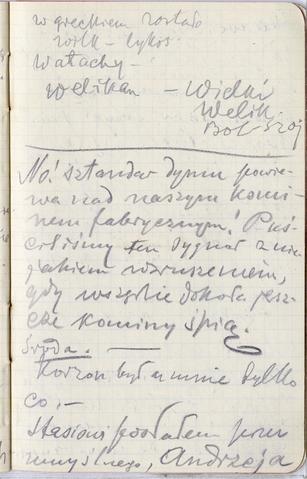 w greckiem zostało
wilk - lykos
Watachy -
Welikan - Wielki
Welik.
No! sztandar dymu powie-
wa nad naszym komi-
nem fabrycznym! Puś-
ciliśmy ten sygnał z nie-
jakiem wzruszeniem,
gdy wszędzie dokoła jesz-
cze kominy śpią.
Środa. —
Korzon był u mnie tylko
co. -
Stasiowi posłałem przez
umyślnego, Andrzeja